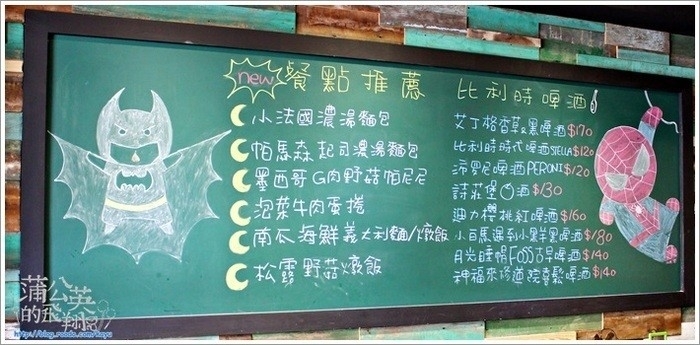 new 餐點推薦
小法國濃湯麵包
帕馬森起司濃湯麵包
墨西哥G肉野菇帕尼尼
泡菜牛肉蛋捲
南瓜海鮮義大利麵/燉飯
松露野菇燉飯
比利時啤酒
艾丁格香草&黑啤酒$170
比利時時代啤酒STELLA$120
沛羅尼啤酒PERONI$120
詩莊堡啤酒$130
迪力櫻桃紅啤酒$160
小白馬遇到小黑羊黑啤酒$180
月光睡帽FOSS古早啤酒$140
神福來修道院喜鬆啤酒$140
蒲公英
的飛翔